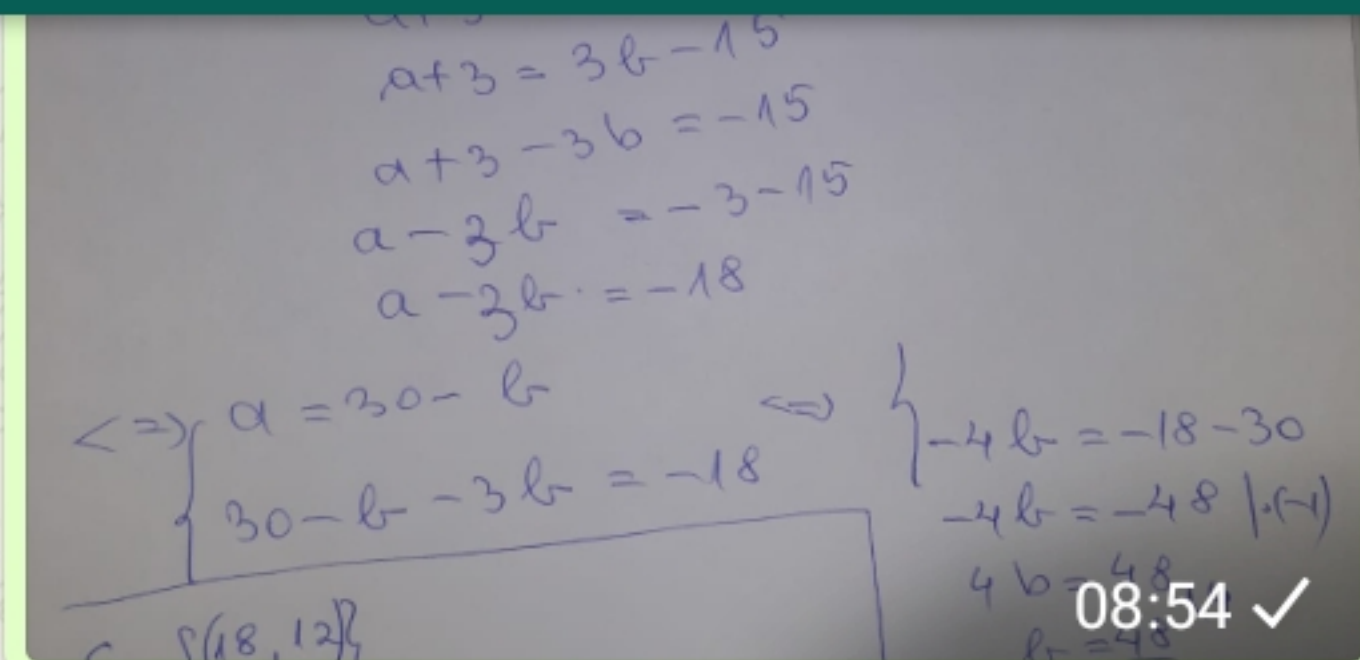 a+3 = 3b-15
a+3-3b = -15
a-3b = -3-15
a-3b = -18
<=> { a = 30-b
30-b-3b = -18
<=> {
-4b = -18-30
-4b = -48 |·(-1)
4b = 48
b = 48
{(18,12)}
08:54 ✓